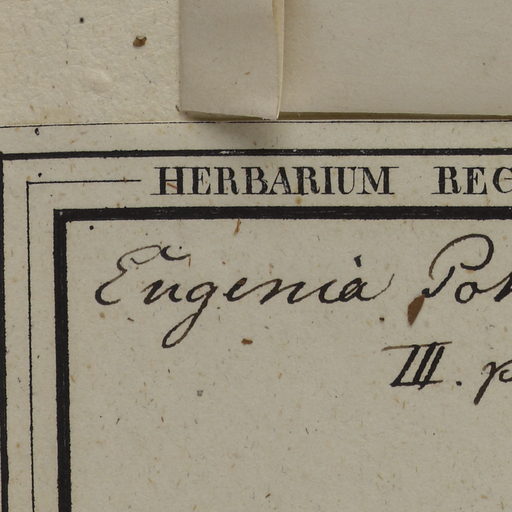 HERBARIUM REG
Eugenia Po
III. p